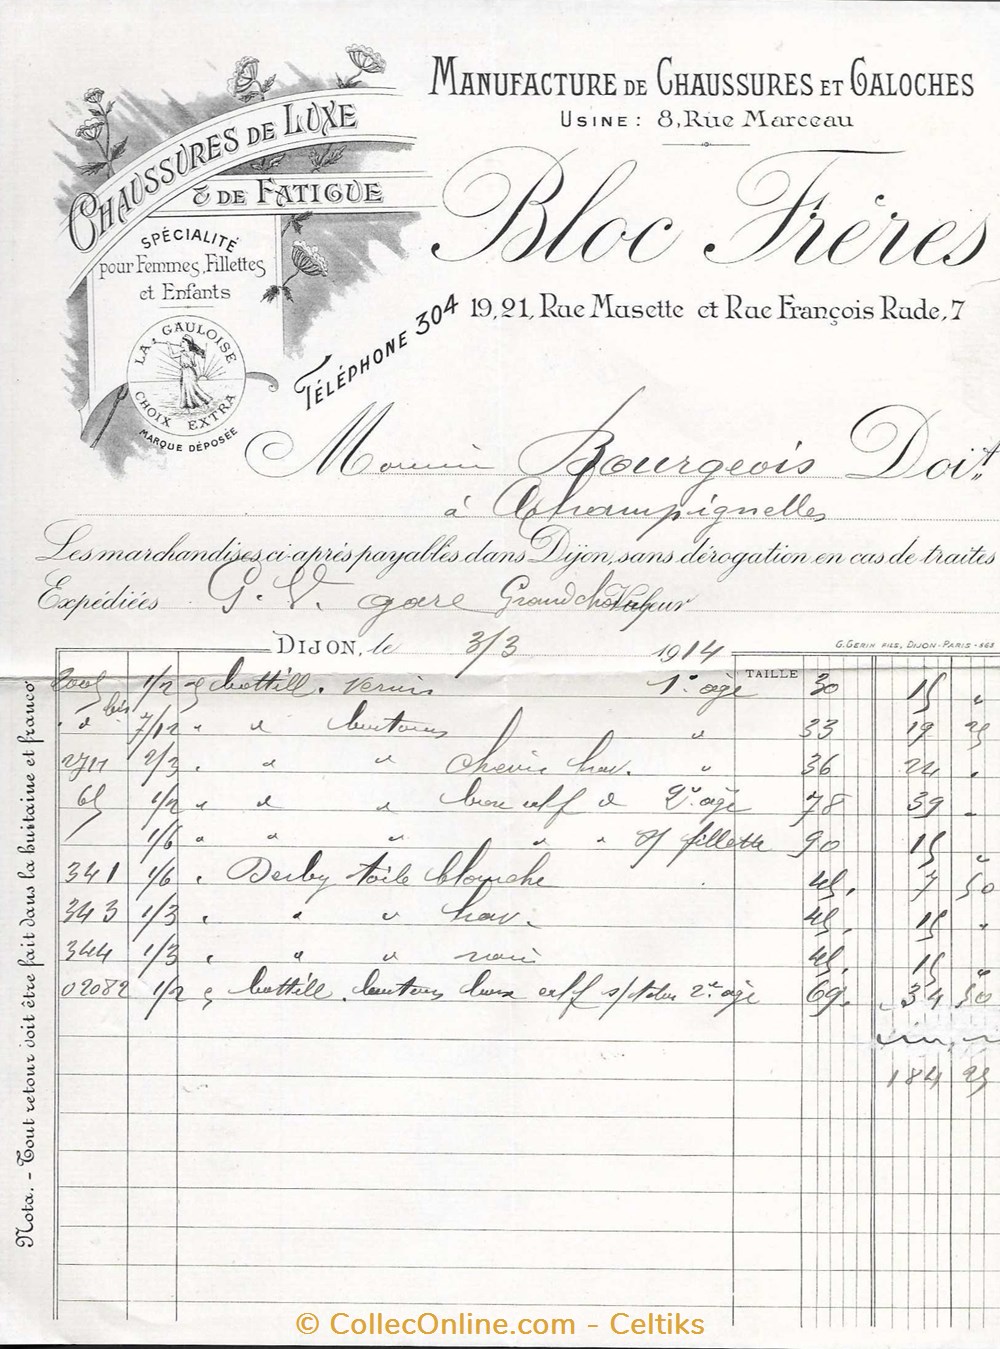 MANUFACTURE DE CHAUSSURES ET GALOCHES
USINE : 8, Rue Marceau
CHAUSSURES DE LUXE
& DE FATIGUE
SPÉCIALITÉ
pour Femmes, Fillettes
et Enfants
LA GAULOISE
CHOIX EXTRA
MARQUE DÉPOSÉE
Bloc Frères
TÉLÉPHONE 304
19, 21, Rue Musette et Rue François Rude, 7
Monsieur Bourgeois Doit
à Champignelles
Les marchandises ci-après payables dans Dijon, sans dérogation en cas de traites
Expédiées G. V. gare Grandchamp
DIJON, le 3/3 1914
G. GERIN FILS, DIJON-PARIS -
TAILLE
1/2 bottill. vernis 1er age 30 15 "
bis 7/12 " d boutons " 33 19 25
2/3 " " " chèvre hav. " 36 24 "
65 1/2 " d " box calf d 2e age 78 39 "
1/6 " " " " " fillette 90 15 "
341 1/6 " Derby toile blanche 45. 7 50
343 1/3 " " " hav. 45. 15 "
344 1/3 " " " noir 45. 15 "
02082 1/2 bottill. boutons box calf 2e age 69. 34 50
184 25
Nota. - Tout retour doit être fait dans la huitaine et franco
© CollecOnline.com - Celtiks